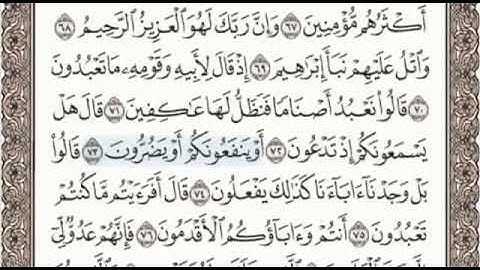 أَكْثَرُهُم مُّؤْمِنِينَ ٦٧ وَإِنَّ رَبَّكَ لَهُوَ ٱلْعَزِيزُ ٱلرَّحِيمُ ٦٨
وَٱتْلُ عَلَيْهِمْ نَبَأَ إِبْرَٰهِيمَ ٦٩ إِذْ قَالَ لِأَبِيهِ وَقَوْمِهِۦ مَا تَعْبُدُونَ
٧٠ قَالُوا۟ نَعْبُدُ أَصْنَامًا فَنَظَلُّ لَهَا عَٰكِفِينَ ٧١ قَالَ هَلْ
يَسْمَعُونَكُمْ إِذْ تَدْعُونَ ٧٢ أَوْ يَنفَعُونَكُمْ أَوْ يَضُرُّونَ ٧٣ قَالُوا۟
بَلْ وَجَدْنَآ ءَابَآءَنَا كَذَٰلِكَ يَفْعَلُونَ ٧٤ قَالَ أَفَرَءَيْتُم مَّا كُنتُمْ
تَعْبُدُونَ ٧٥ أَنتُمْ وَءَابَآؤُكُمُ ٱلْأَقْدَمُونَ ٧٦ فَإِنَّهُمْ عَدُوٌّ لِّىٓ